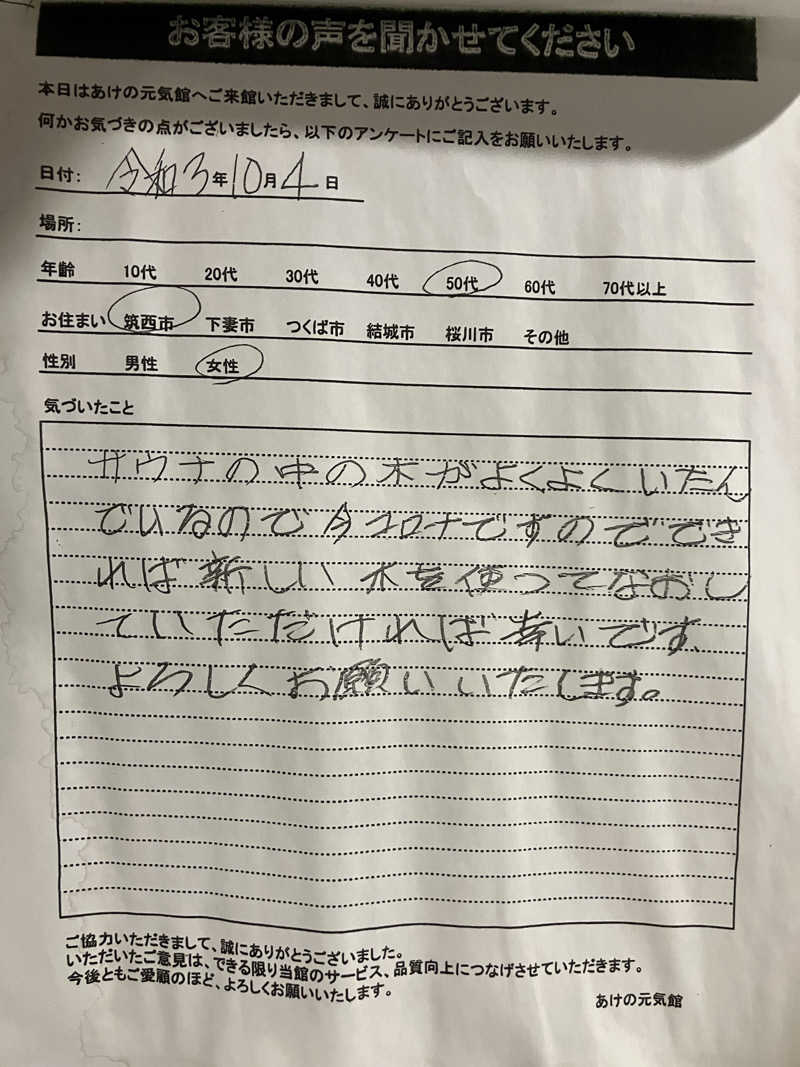 お客様の声を聞かせてください
本日はあけの元気館へご来館いただきまして、誠にありがとうございます。
何かお気づきの点がございましたら、以下のアンケートにご記入をお願いいたします。
日付: 令和3年10月4日
場所:
年齢 10代 20代 30代 40代 50代 60代 70代以上
お住まい 筑西市 下妻市 つくば市 結城市 桜川市 その他
性別 男性 女性
気づいたこと
サウナの中の木がよくよくいたん
でいるので今コロナですのででき
れば新しい木を使ってなおし
ていただければ幸いです、
よろしくお願いいたします。
ご協力いただきまして、誠にありがとうございました。
いただいたご意見は、できる限り当館のサービス、品質向上につなげさせていただきます。
今後ともご愛顧のほど、よろしくお願いいたします。
あけの元気館